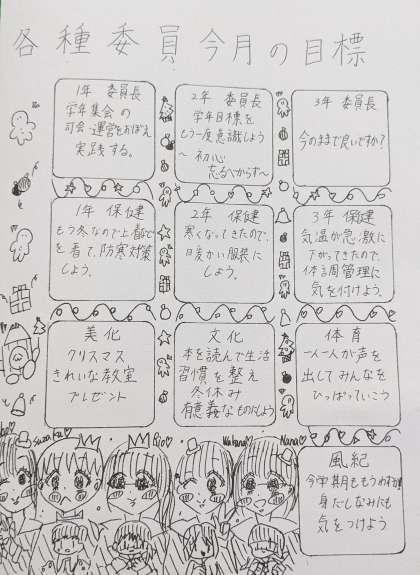 各種委員今月の目標
1年 委員長
学年集会の
司会・運営をおぼえ
実践する。
2年 委員長
学年目標を
もう一度意識しよう
〜 初心
忘るべからず〜
3年 委員長
今のままで良いですか？
1年 保健
もう冬なので上着など
を着て、防寒対策
しよう。
2年 保健
寒くなってきたので、
暖かい服装に
しよう。
3年 保健
気温が急激に
下がってきたので、
体調管理に
気を付けよう。
美化
クリスマス
きれいな教室
プレゼント
文化
本を読んで生活
習慣を整え
冬休み
有意義なものにしよう
体育
一人一人が声を
出してみんなを
ひっぱっていこう
風紀
今学期ももうわずか
身だしなみにも
気をつけよう
Rio♡
Wakana♡
Nana♡